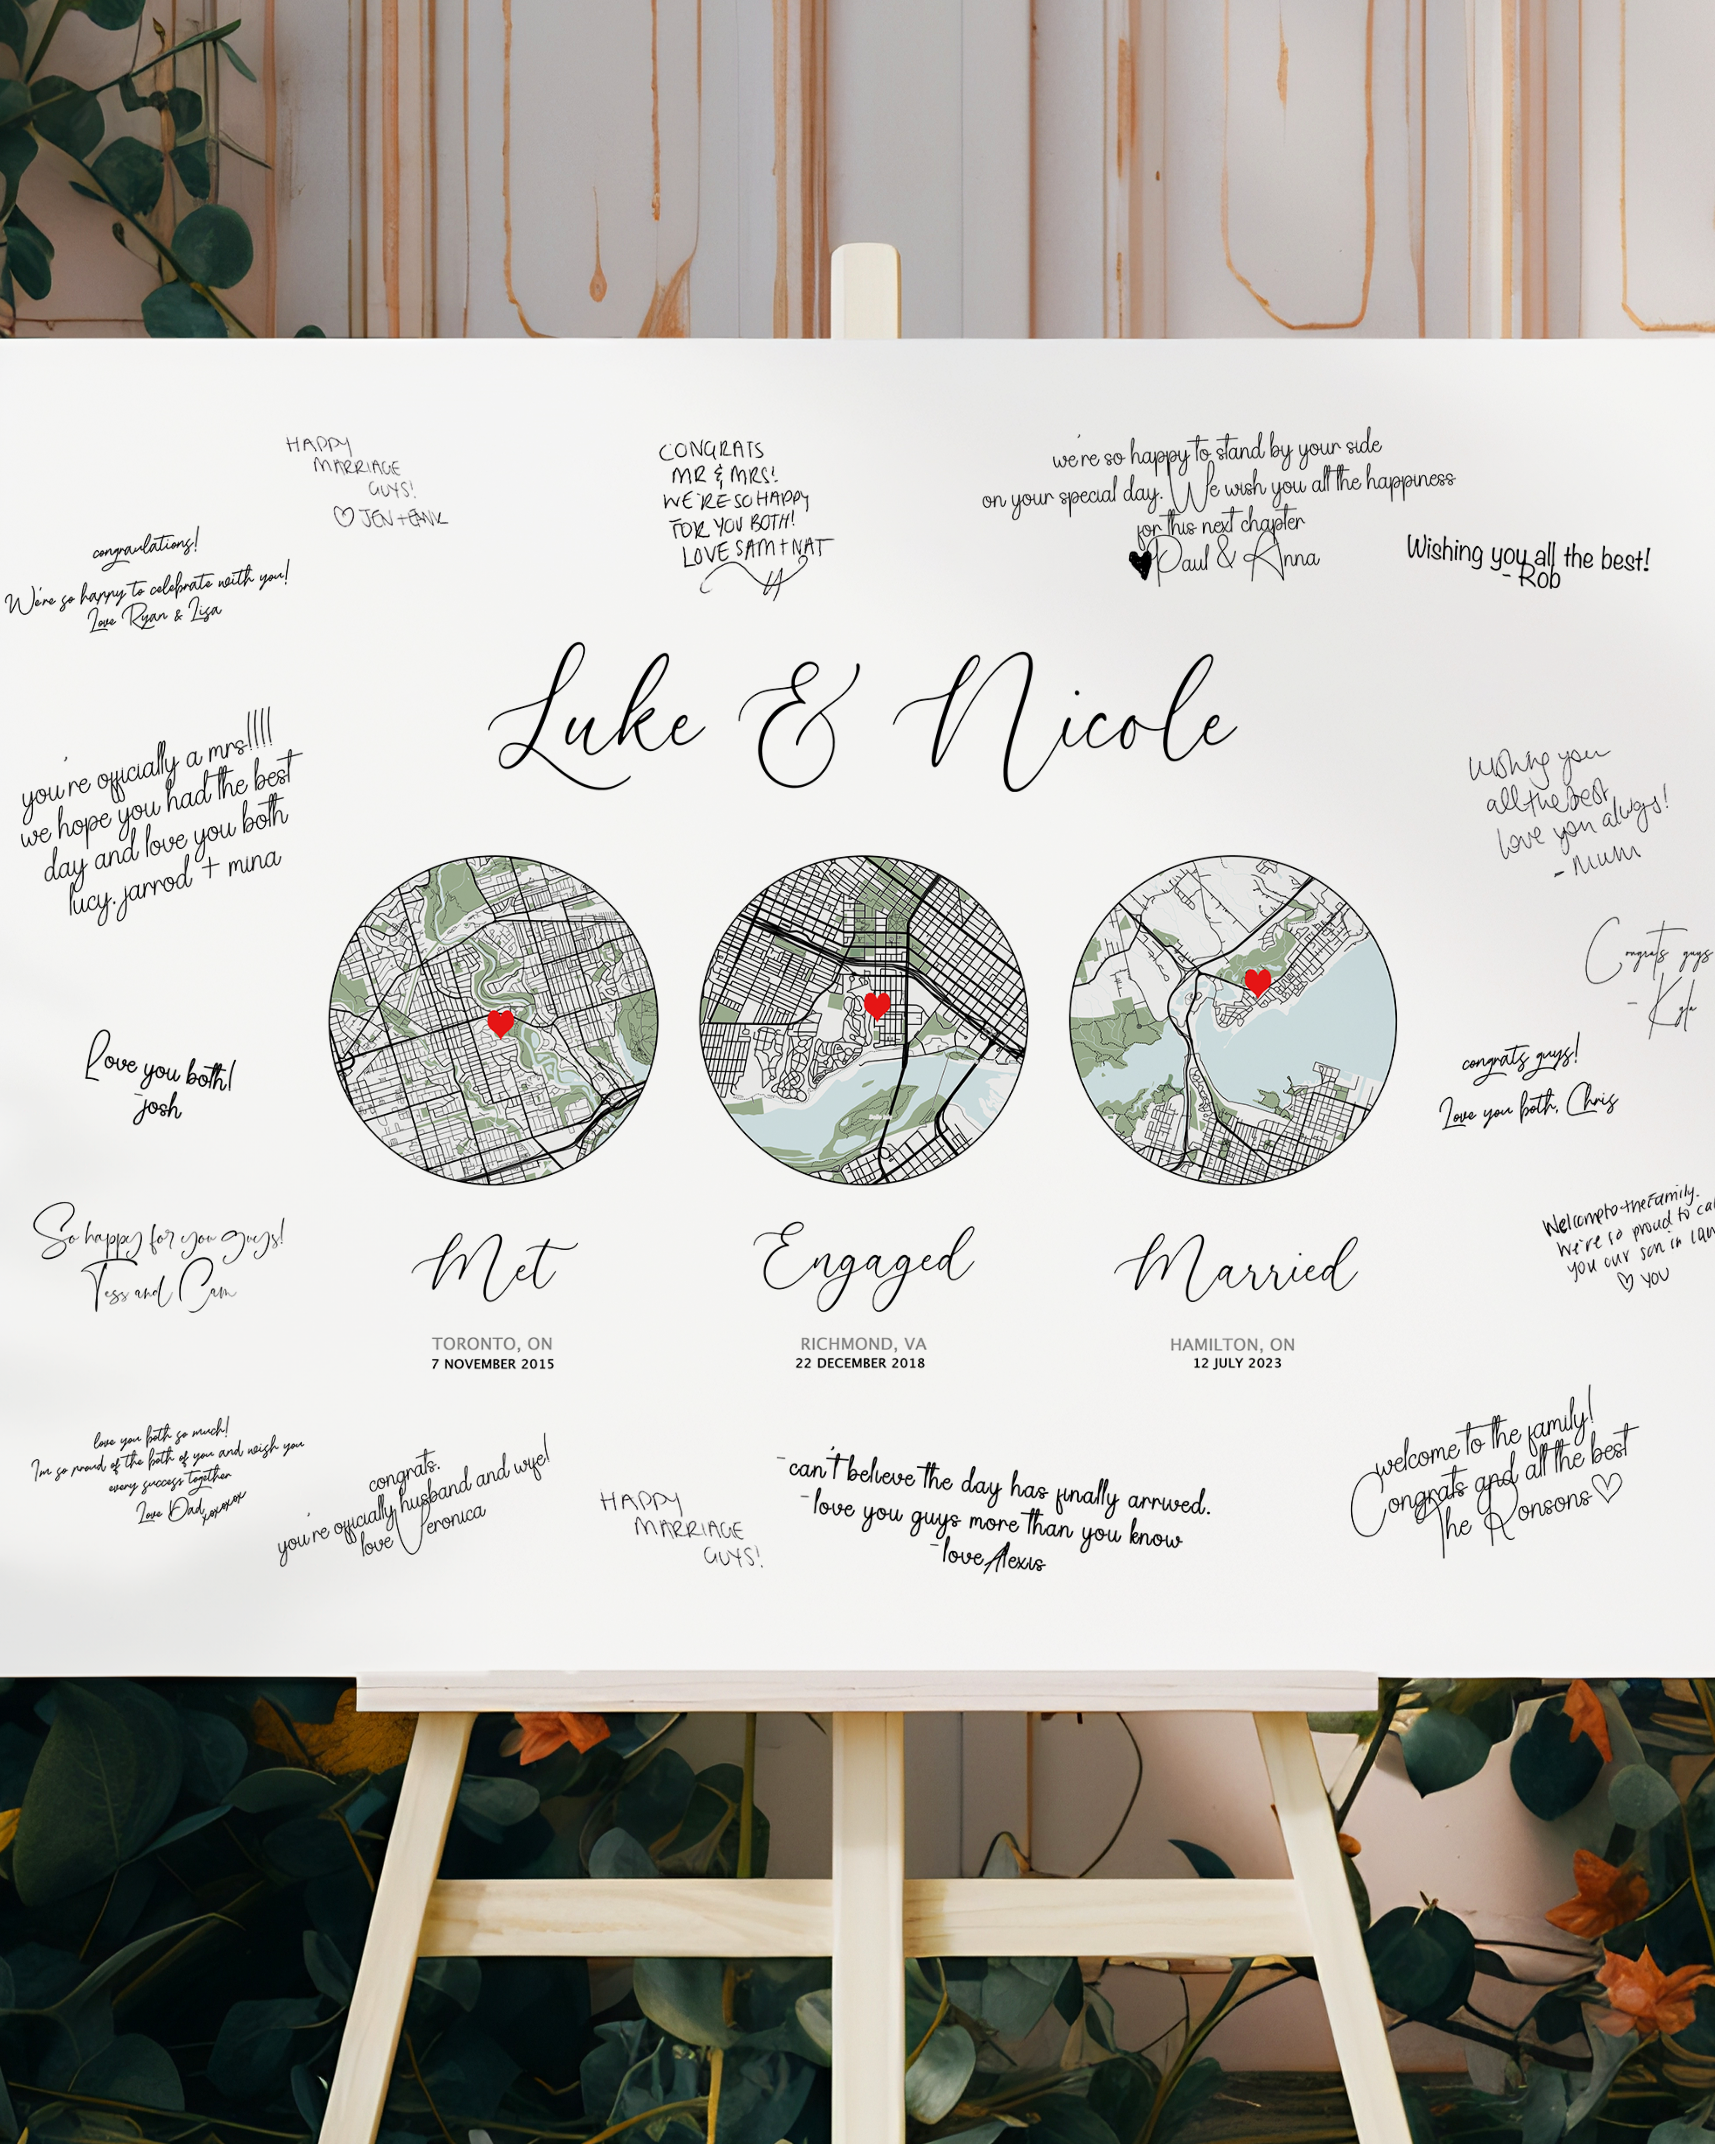 HAPPY
MARRIAGE
GUYS!
♡ JEN +
CONGRATS
MR & MRS!
WE'RE SO HAPPY
FOR YOU BOTH!
LOVE SAM + NAT
we're so happy to stand by your side
on your special day. We wish you all the happiness
for this next chapter
♥ Paul & Anna
Wishing you all the best!
- Rob
congraulations!
We're so happy to celebrate with you!
Love Ryan & Lisa
Luke & Nicole
you're officially a mrs!!!!
we hope you had the best
day and love you both
lucy. jarrod + mina
wishing you
all the best
love you always!
- mum
Congrats guys
- Kyla
Love you both!
-josh
congrats guys!
Love you both, Chris
So happy for you guys!
Tess and Cam
Welcome to the family.
We're so proud to
you our son in law
♡ you
Met
Engaged
Married
TORONTO, ON
7 NOVEMBER 2015
RICHMOND, VA
22 DECEMBER 2018
HAMILTON, ON
12 JULY 2023
love you both so much!
I'm so proud of the both of you and wish you
every success together
Love Dad xoxoxox
congrats.
you're officially husband and wife!
love Veronica
HAPPY
MARRIAGE
GUYS!
-can't believe the day has finally arrived.
-love you guys more than you know
-love Alexis
welcome to the family!
Congrats and all the best
The Ronsons ♡